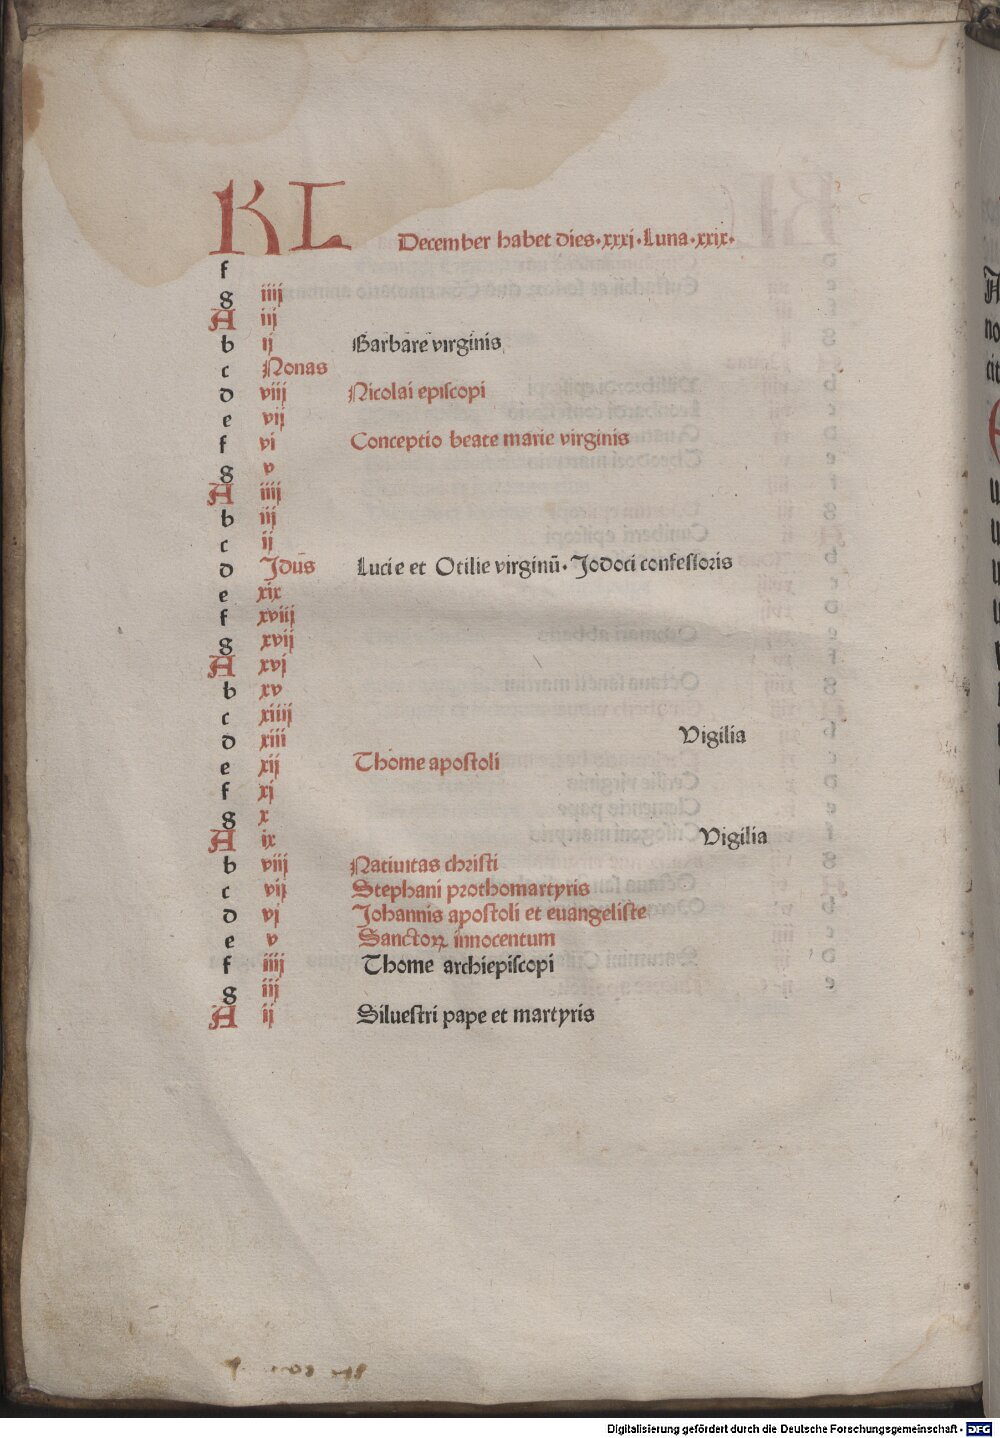 KL December habet dies·xxxj·Luna·xxix·
f
g iiij
A iij
b ij Barbare virginis
c Nonas
d viij Nicolai episcopi
e vij
f vi Conceptio beate marie virginis
g v
A iiij
b iij
c ij
d Jdus̄ Lucie et Otilie virginū·Jodoci confessoris
e xix
f xviij
g xvij
A xvj
b xv
c xiiij
d xiii Vigilia
e xij Thome apostoli
f xj
g x
A ix Vigilia
b viij Natiuitas christi
c vij Stephani prothomartyris
d vj Johannis apostoli et euangeliste
e v Sanctoꝝ innocentum
f iiij Thome archiepiscopi
g iij
A ij Siluestri pape et martyris
Digitalisierung gefördert durch die Deutsche Forschungsgemeinschaft - DFG